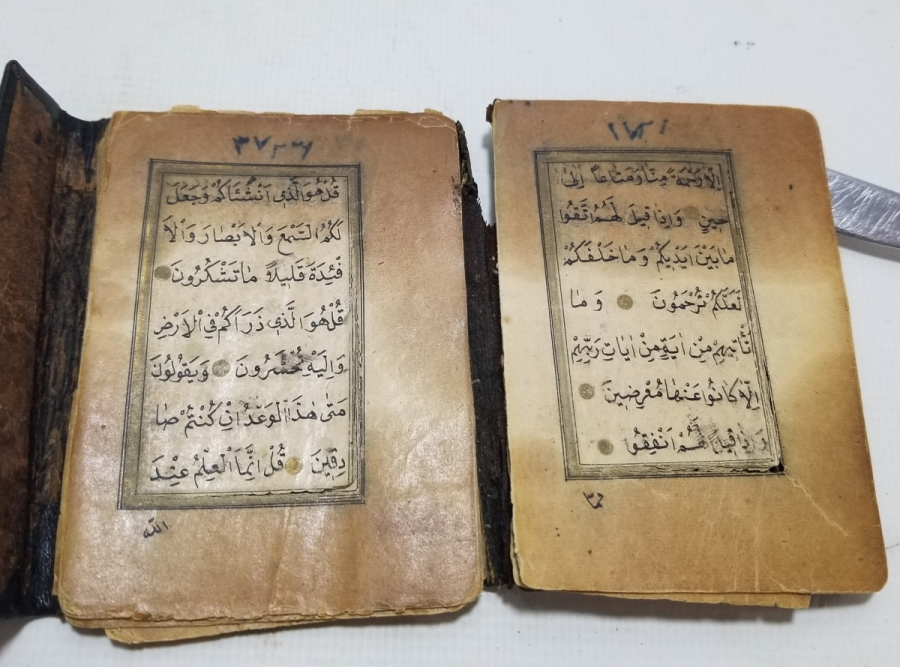 اِلَّا رَحْمَةً مِنَّا وَمَتَاعًا اِلٰى
حِينٍ وَاِذَا قِيلَ لَهُمُ اتَّقُوا
مَا بَيْنَ اَيْدِيكُمْ وَمَا خَلْفَكُمْ
لَعَلَّكُمْ تُرْحَمُونَ وَمَا
تَاْتِيهِمْ مِنْ اٰيَةٍ مِنْ اٰيَاتِ رَبِّهِمْ
اِلَّا كَانُوا عَنْهَا مُعْرِضِينَ
وَاِذَا قِيلَ لَهُمْ اَنْفِقُوا
مما
قُلْ هُوَ الَّذِي اَنْشَاَكُمْ وَجَعَلَ
لَكُمُ السَّمْعَ وَالْاَبْصَارَ وَالْاَ
فْئِدَةَ قَلِيلًا مَا تَشْكُرُونَ
قُلْ هُوَ الَّذِي ذَرَاَكُمْ فِي الْاَرْضِ
وَاِلَيْهِ تُحْشَرُونَ وَيَقُولُونَ
مَتٰى هٰذَا الْوَعْدُ اِنْ كُنْتُمْ صَا
دِقِينَ قُلْ اِنَّمَا الْعِلْمُ عِنْدَ
الله